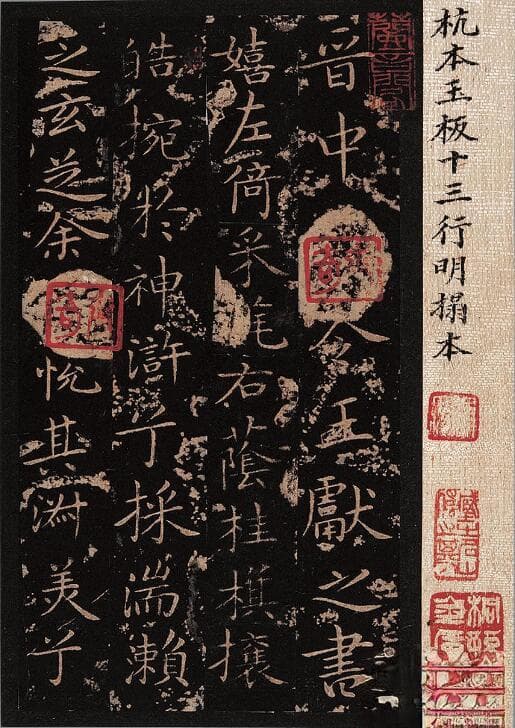 杭本玉板十三行明搨本
晉中令王獻之書
嬉左倚采旄右蔭桂旗攘
皓捥於神滸兮採湍瀨
之玄芝余悅其淑美兮